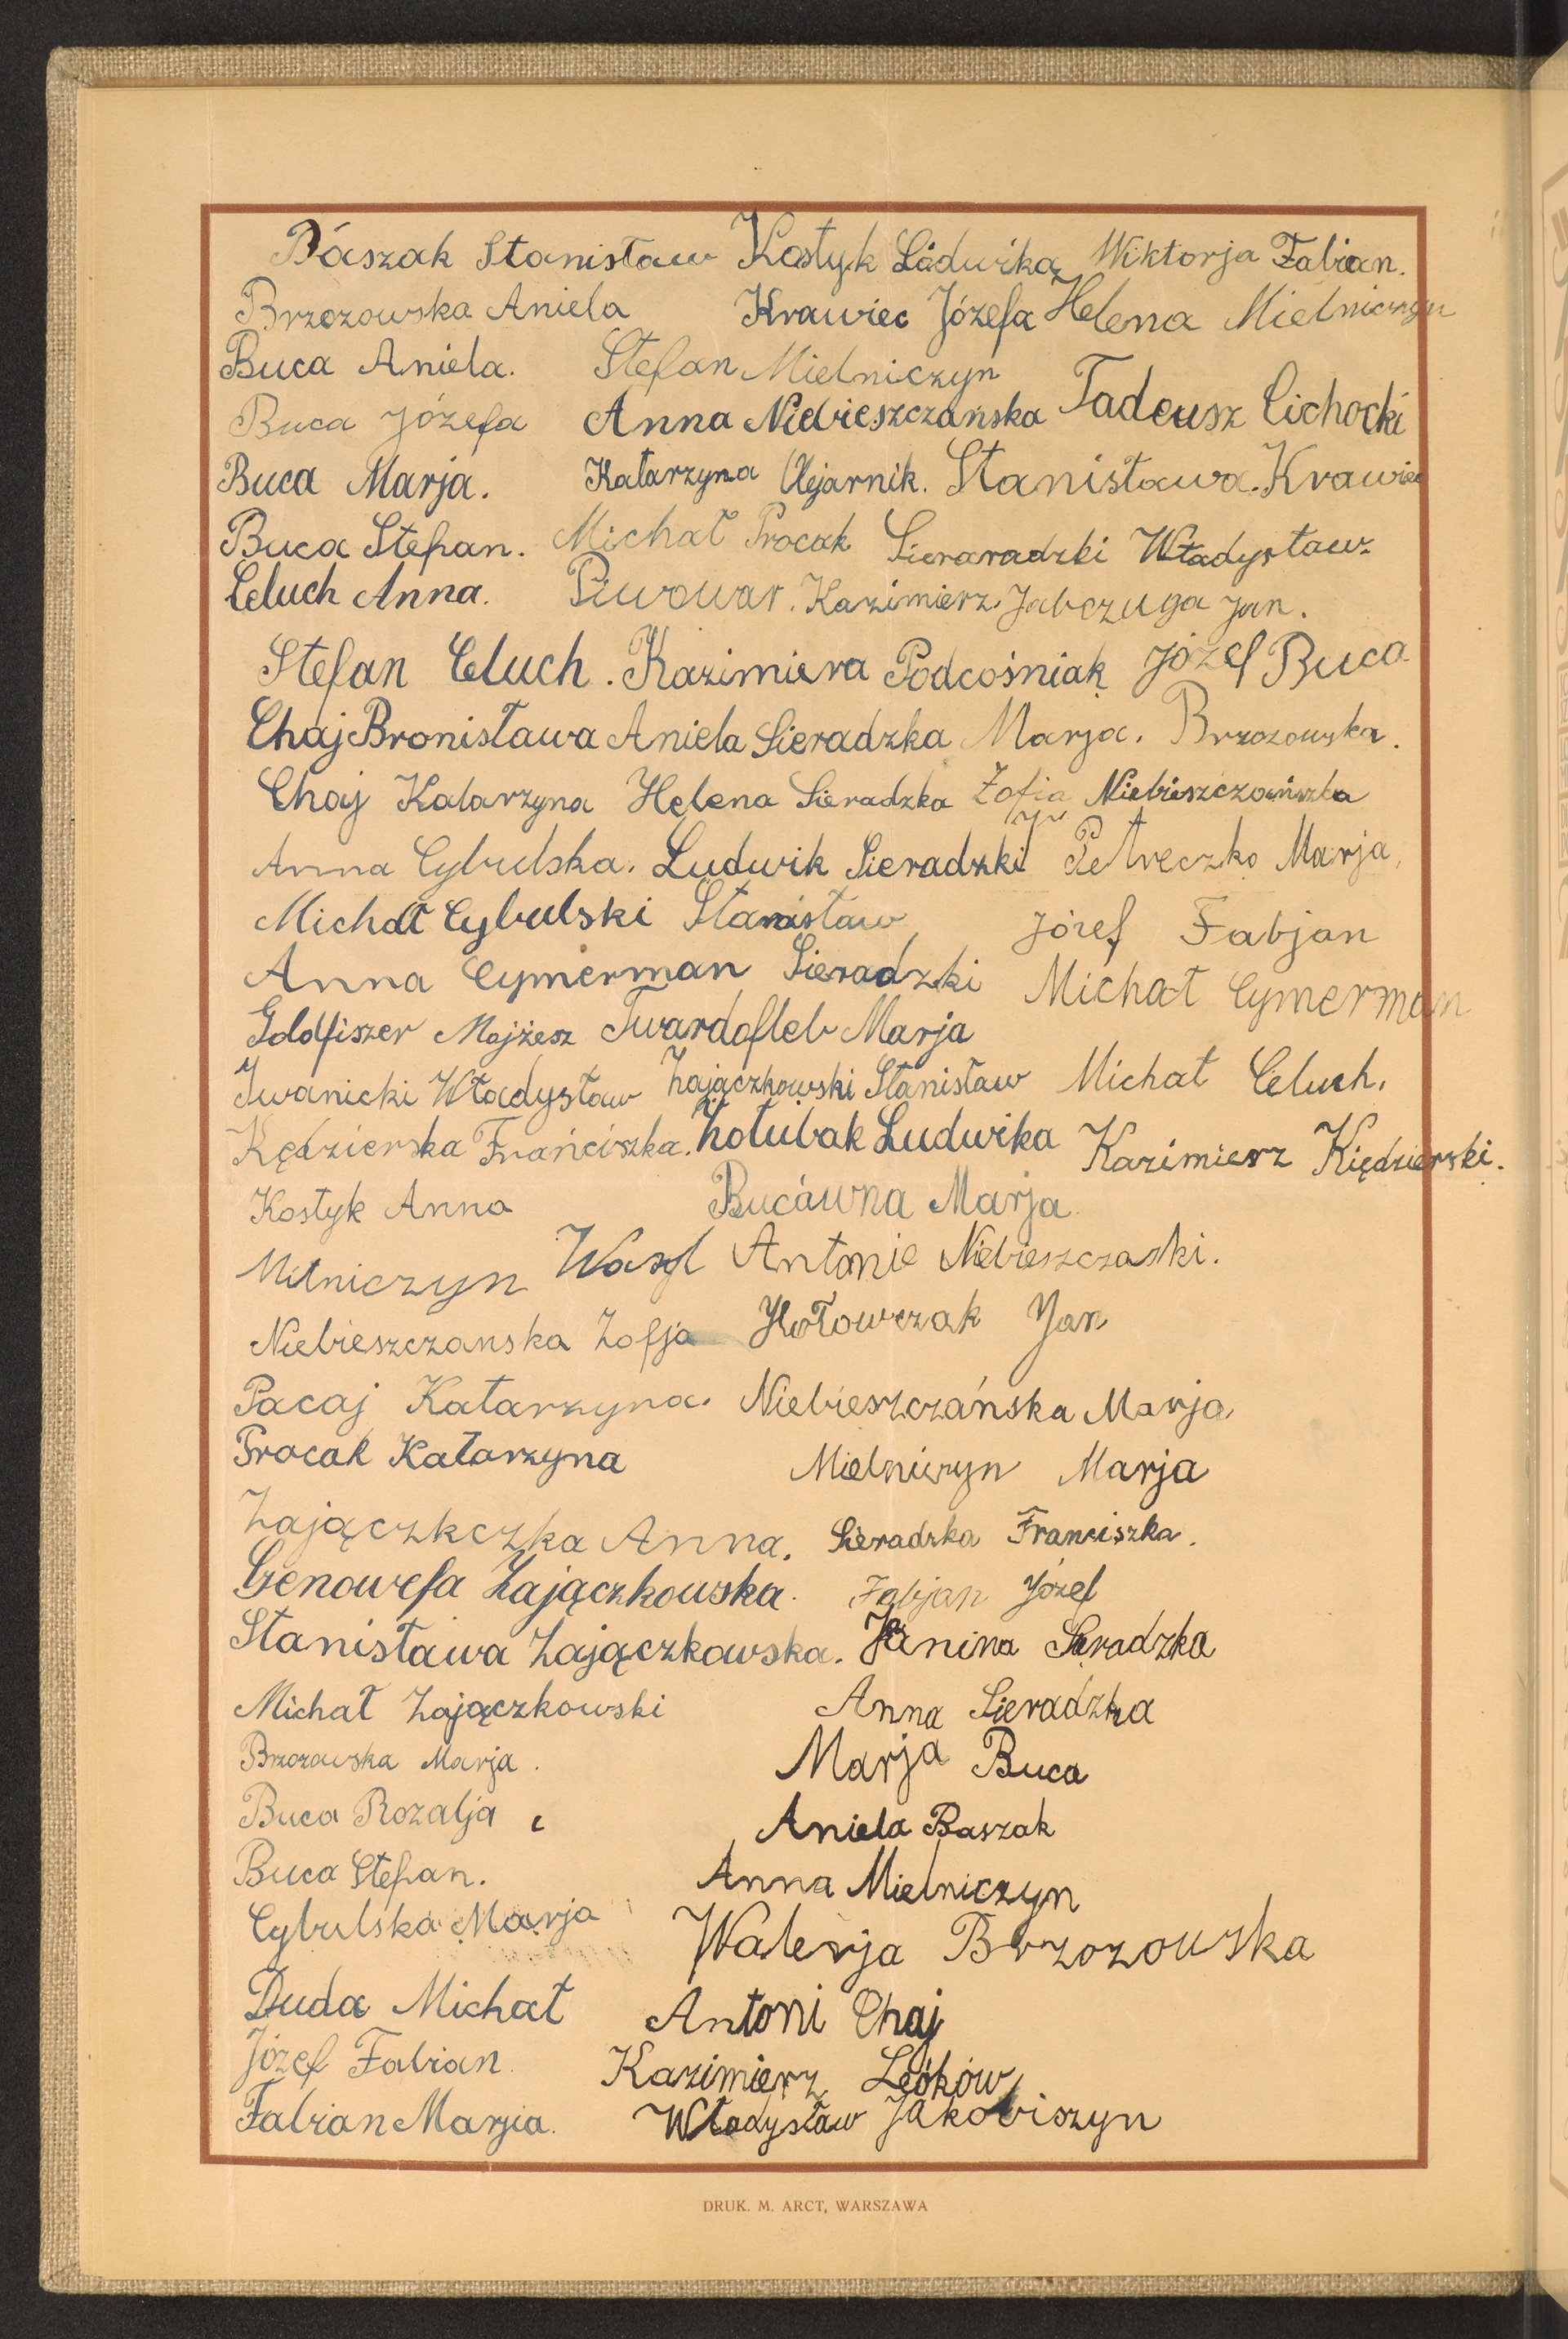 Baszak Stanisław Kostyk Ludwika Wiktorja Fabian.
Brzozowska Aniela Krawiec Józefa Helena Mielniczyn
Buca Aniela. Stefan Mielniczyn
Buca Józefa Anna Niebieszczańska Tadeusz Cichocki
Buca Marja. Katarzyna Olejarnik. Stanisława. Krawiec
Buca Stefan. Michał Procak Sieraradzki Władysław
Celuch Anna. Piwowar. Kazimierz. Jabczuga Jan.
Stefan Celuch. Kazimiera Podcośniak Józef Buca
Chaj Bronisława Aniela Sieradzka Marja. Brzozowska.
Chaj Katarzyna Helena Sieradzka Zofia Niebieszczańska
Anna Cybulska. Ludwik Sieradzki Petreczko Marja,
Michał Cybulski Stanisław Józef Fabjan
Anna Cymerman Sieradzki Michał Cymerman
Goldfiszer Mojżesz Twardofleb Marja
Iwanicki Władysław Zajączkowski Stanisław Michał Celuch.
Kędzierska Franciszka. Hołubak Ludwika Kazimierz Kiędzierski.
Kostyk Anna Bucówna Marja
Milniczyn Wasyl Antonie Niebieszczaski.
Niebieszczanska Zofja Hołowczak Jan
Pacaj Katarzyna. Niebieszczańska Marja
Procak Katarzyna Mielniczyn Marja
Zajączkczka Anna. Sieradzka Franciszka.
Genowefa Zajączkowska. Fabjan Józef
Stanisława Zajączkowska. Janina Seradzka
Michał Zajączkowski Anna Sieradzka
Brzozowska Marja. Marja Buca
Buca Rozalja Aniela Baszak
Buca Stefan. Anna Mielniczyn
Cybulska Marja Walerja Brzozowska
Duda Michał Antoni Chaj
Józef Fabian Kazimierz
Fabian Marjia. Władysław Jakobiszyn
DRUK. M. ARCT, WARSZAWA